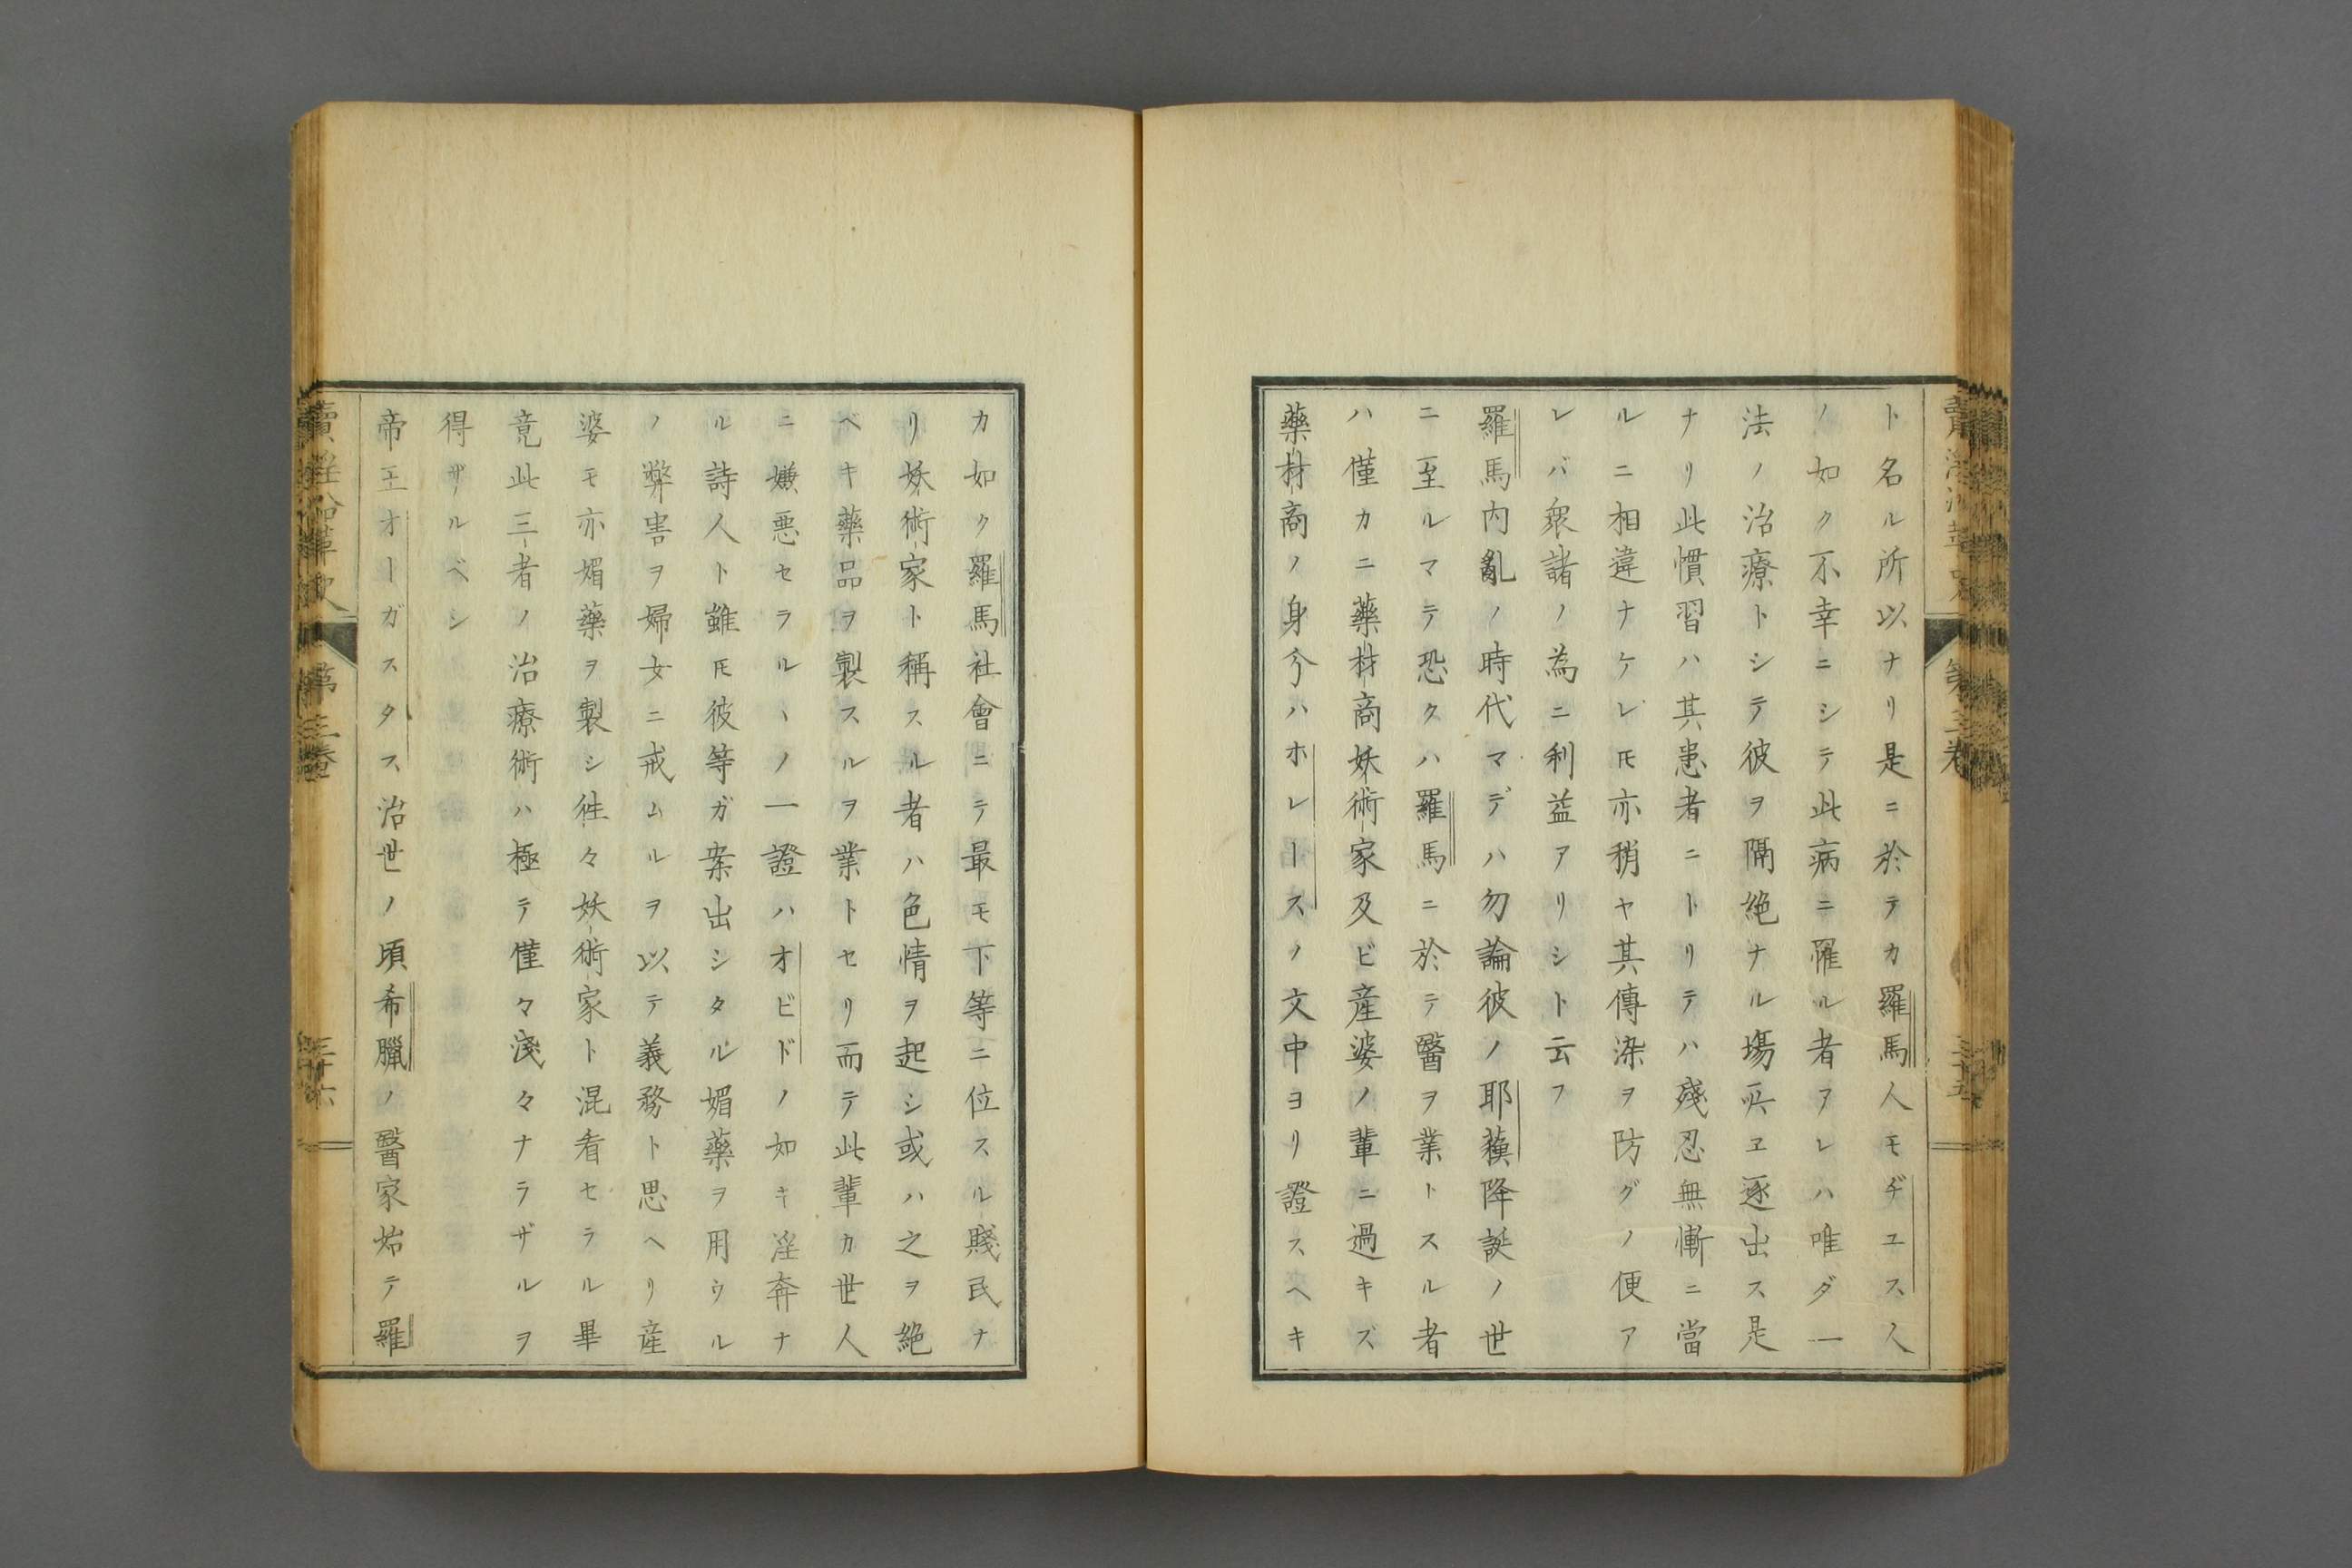 ト名ル所以ナリ是ニ於テカ羅馬人モヂユス人
ノ如ク不幸ニシテ此病ニ罹ル者アレハ唯ダ一
法ノ治療トシテ彼ヲ隔絶ナル塲所ヱ逐出ス是
ナリ此慣習ハ其患者ニトリテハ殘忍無慚ニ當
ルニ相違ナケレ𪜈亦稍ヤ其傳染ヲ防グノ便ア
レバ衆諸ノ為ニ利益アリシト云フ
羅馬内亂ノ時代マデハ勿論彼ノ耶蘓降誕ノ世
ニ至ルマテ恐クハ羅馬ニ於テ醫ヲ業トスル者
ハ僅カニ藥材商妖術家及ビ産婆ノ輩ニ過キズ
藥材商ノ身分ハホレースノ文中ヨリ證スヘキ
カ如ク羅馬社會ニテ最モ下等ニ位スル賤民ナ
リ妖術家ト稱スル者ハ色情ヲ起シ或ハ之ヲ絶
ベキ藥品ヲ製スルヲ業トセリ而テ此輩カ世人
ニ嫌悪セラルヽノ一證ハオビドノ如キ淫奔ナ
ル詩人ト雖𪜈彼等ガ案出シタル媚藥ヲ用ウル
ノ弊害ヲ婦女ニ戒ムルヲ以テ義務ト思ヘリ産
婆モ亦媚藥ヲ製シ徃々妖術家ト混看セラル畢
竟此三者ノ治療術ハ極テ僅々淺々ナラザルヲ
得ザルベシ
帝王オーガスタス治世ノ頃希臘ノ醫家始テ羅
賣淫沿革史
第三卷
三十六